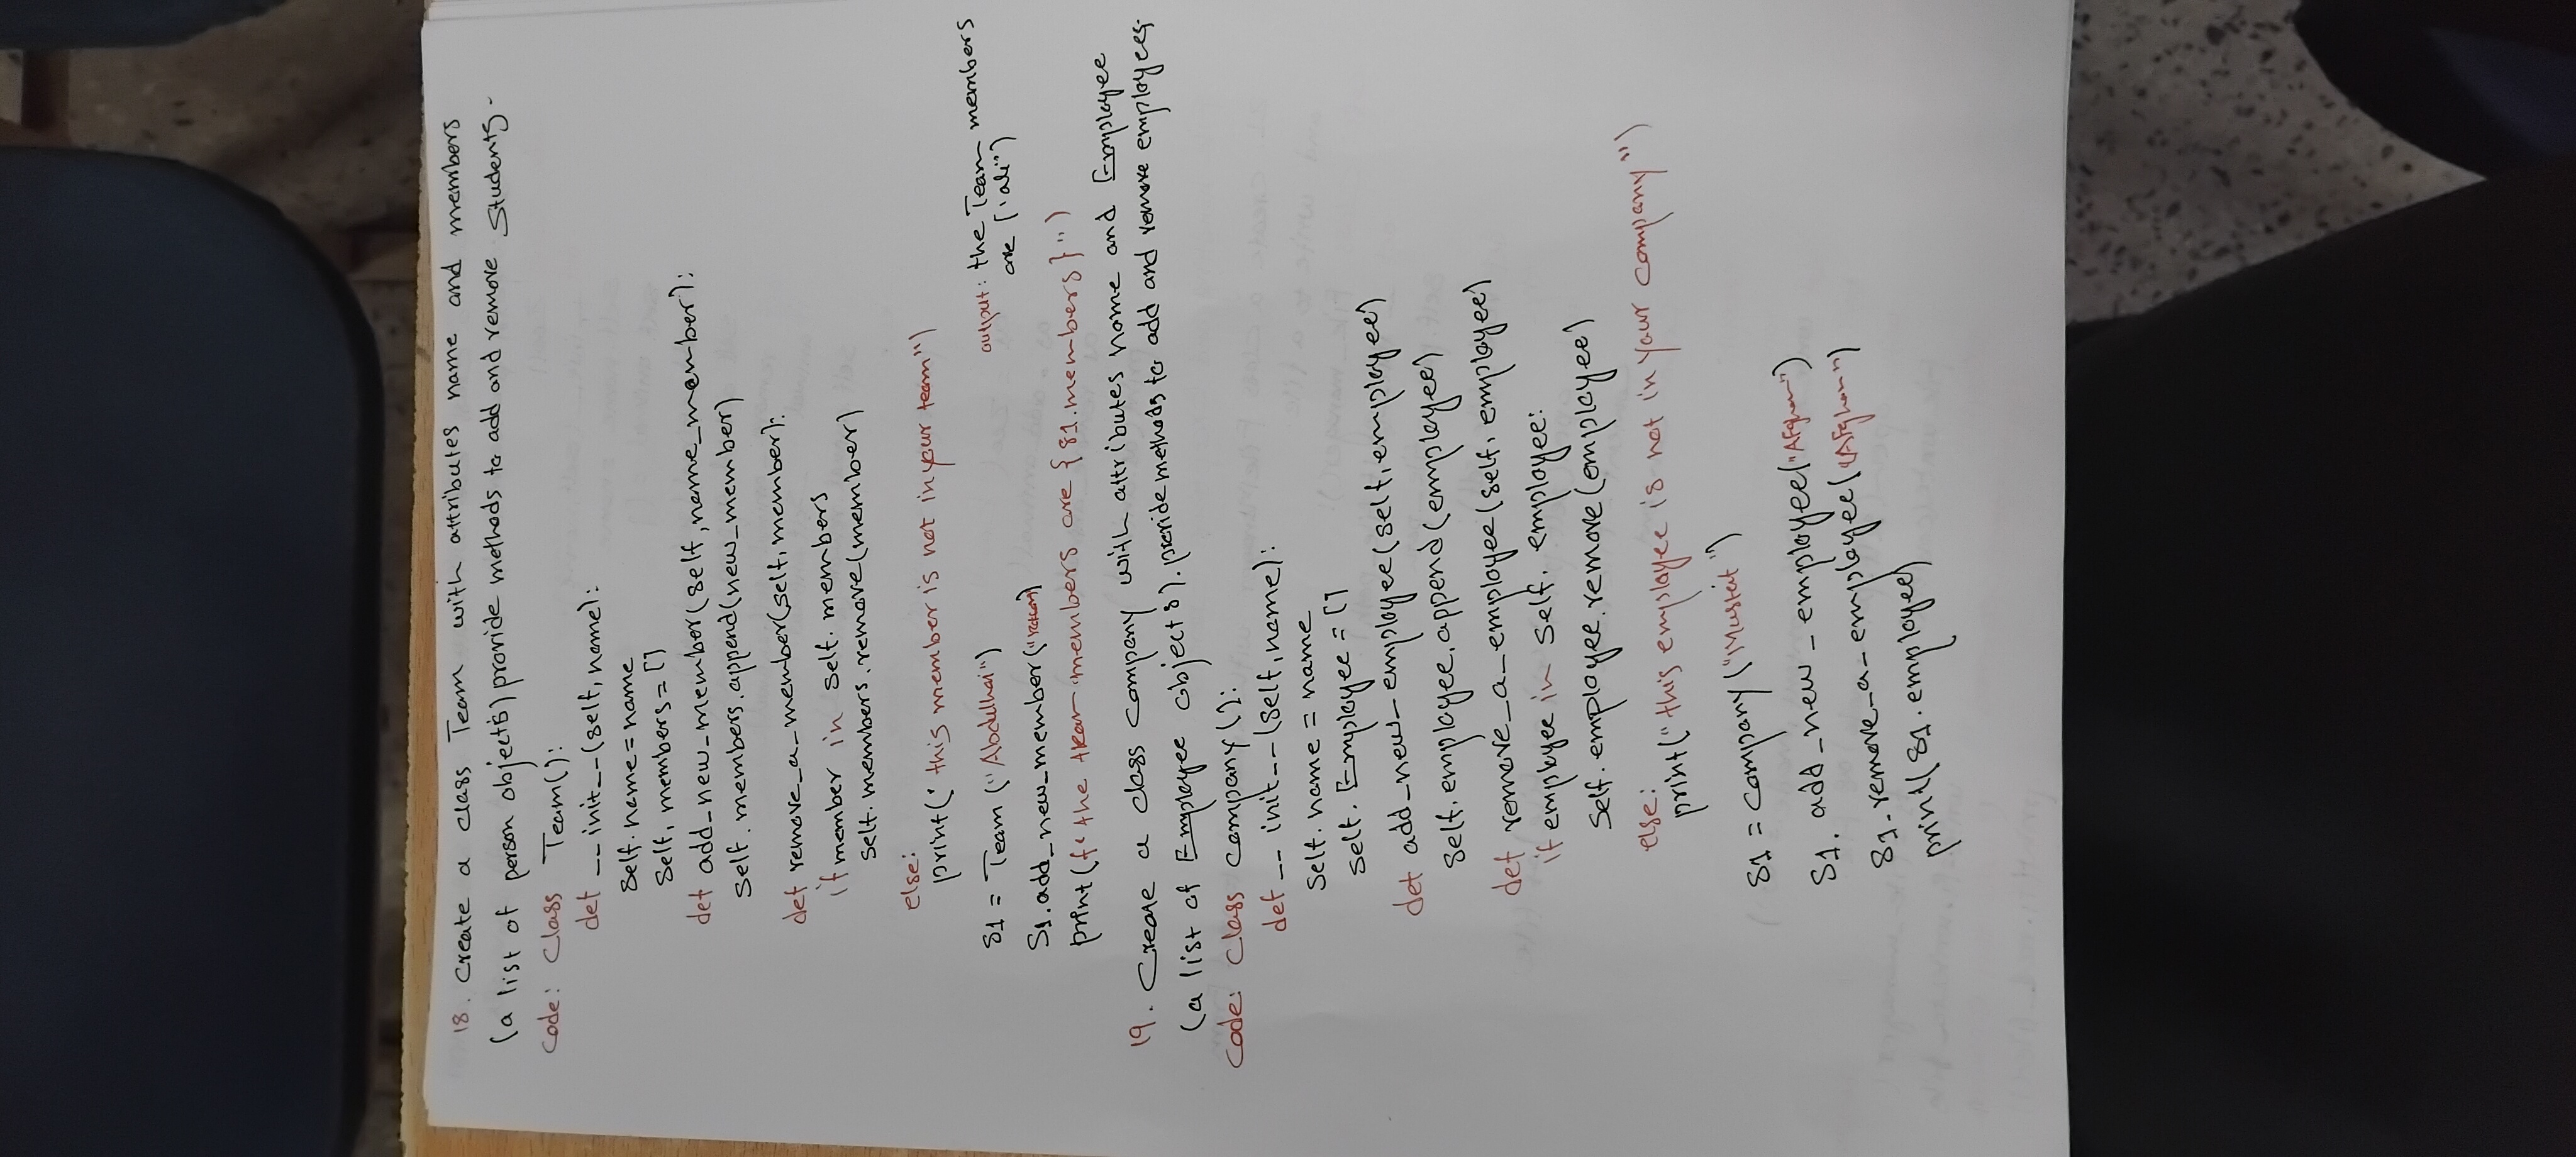 18. Create a class Team with attributes name and members
(a list of person objects) provide methods to add and remove Students-
Code: Class Team():
def __init__(self, name):
Self.name = name
Self, members = []
def add_new_member(self, name_member):
Self.members.append(new_member)
def remove_a_member(self, member):
if member in self.members
self.members.remove(member)
else:
print(" this member is not in your team")
S1 = Team ("Abdulhai")
output: the Team members
are ["ali")
S1.add_new_member("
print(f" the members are {S1.members}")
19. Create a class Company with attributes name and Employee
(a list of Employee objects). provide methods to add and remove employees.
Code: Class Company():
def __ init__(self, name):
Self.name = name
self.Employee = []
def add_new_employee(self, employee)
self.employee.append(employee)
def remove_a_employee(self, employee)
if employee in Self.employee:
Self.employee.remove(employee)
else:
print("this employee is not in your company")
S1 = Company ("
S1. add_new_employee("Afghan")
S1.remove_a_employee("Afghan")
print(S1.employee)